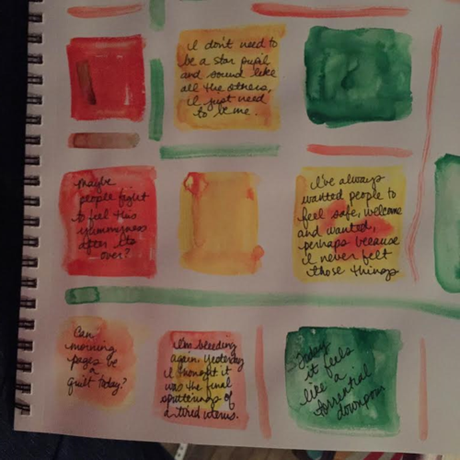 I don't need to
be a star pupil
and sound like
all the others,
I just need
to be me.
Maybe
people fight
to feel this
yumminess
after it's
over?
I've always
wanted people to
feel safe, welcome
and wanted,
perhaps because
I never felt
those things
Can
morning
pages be
a
quilt today?
I'm bleeding
again. Yesterday
I thought it
was the final
sputterings of
a tired uterus.
Today
it feels
like a
torrential
downpour